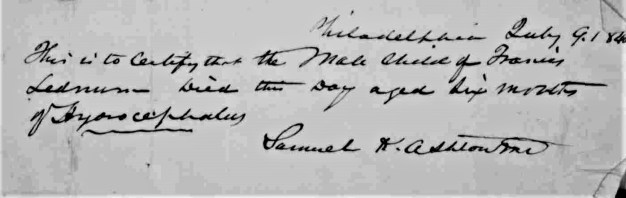 Philadelphia July 9. 184
This is to Certify that the Male Child of Francis
Lednum Died this Day aged Six Months
of Hydrocephalus
Samuel K. Ashton MD